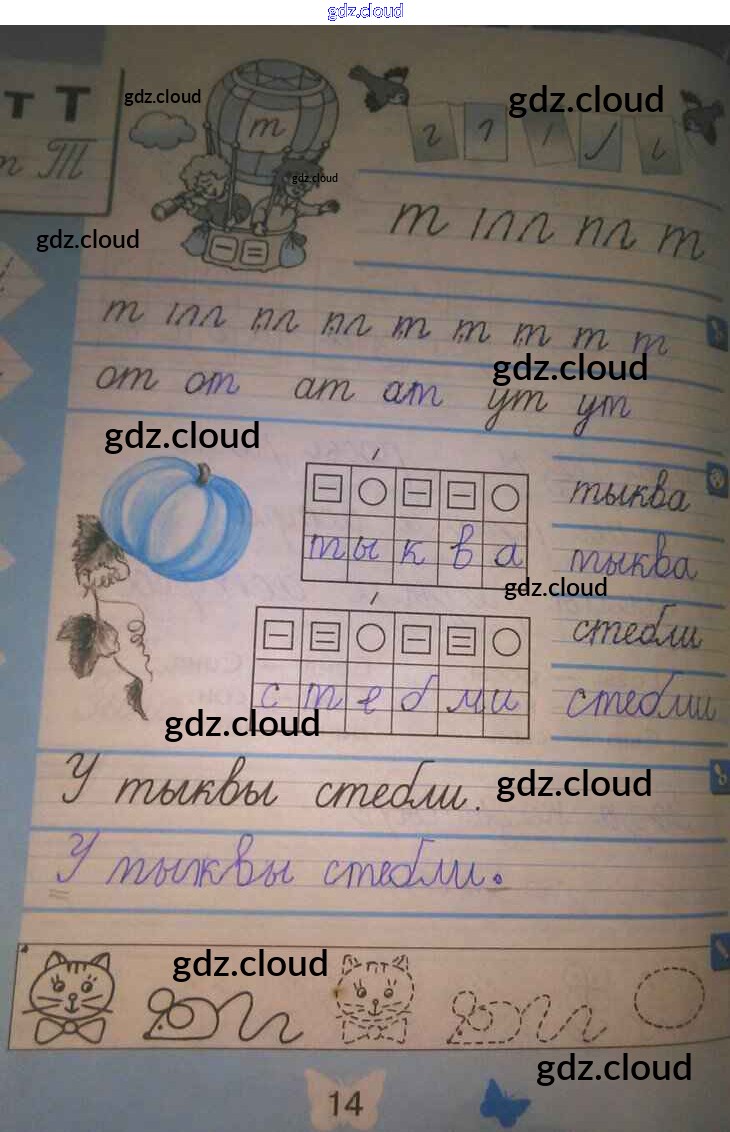 gdz.cloud
т Т
gdz.cloud
gdz.cloud
т Т
т
gdz.cloud
gdz.cloud
т ılл пл т
т ılл пл пл т т т т т
gdz.cloud
от от ат ат ут ут
gdz.cloud
тыква
т ы к в а
тыква
gdz.cloud
стебли
с т е б л и
стебли
gdz.cloud
У тыквы стебли.
gdz.cloud
У тыквы стебли.
gdz.cloud
gdz.cloud
14